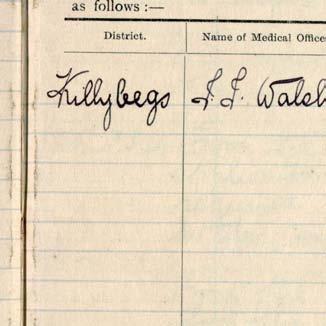 as follows :—
District. Name of Medical Office
Killybegs J. J. Walsh